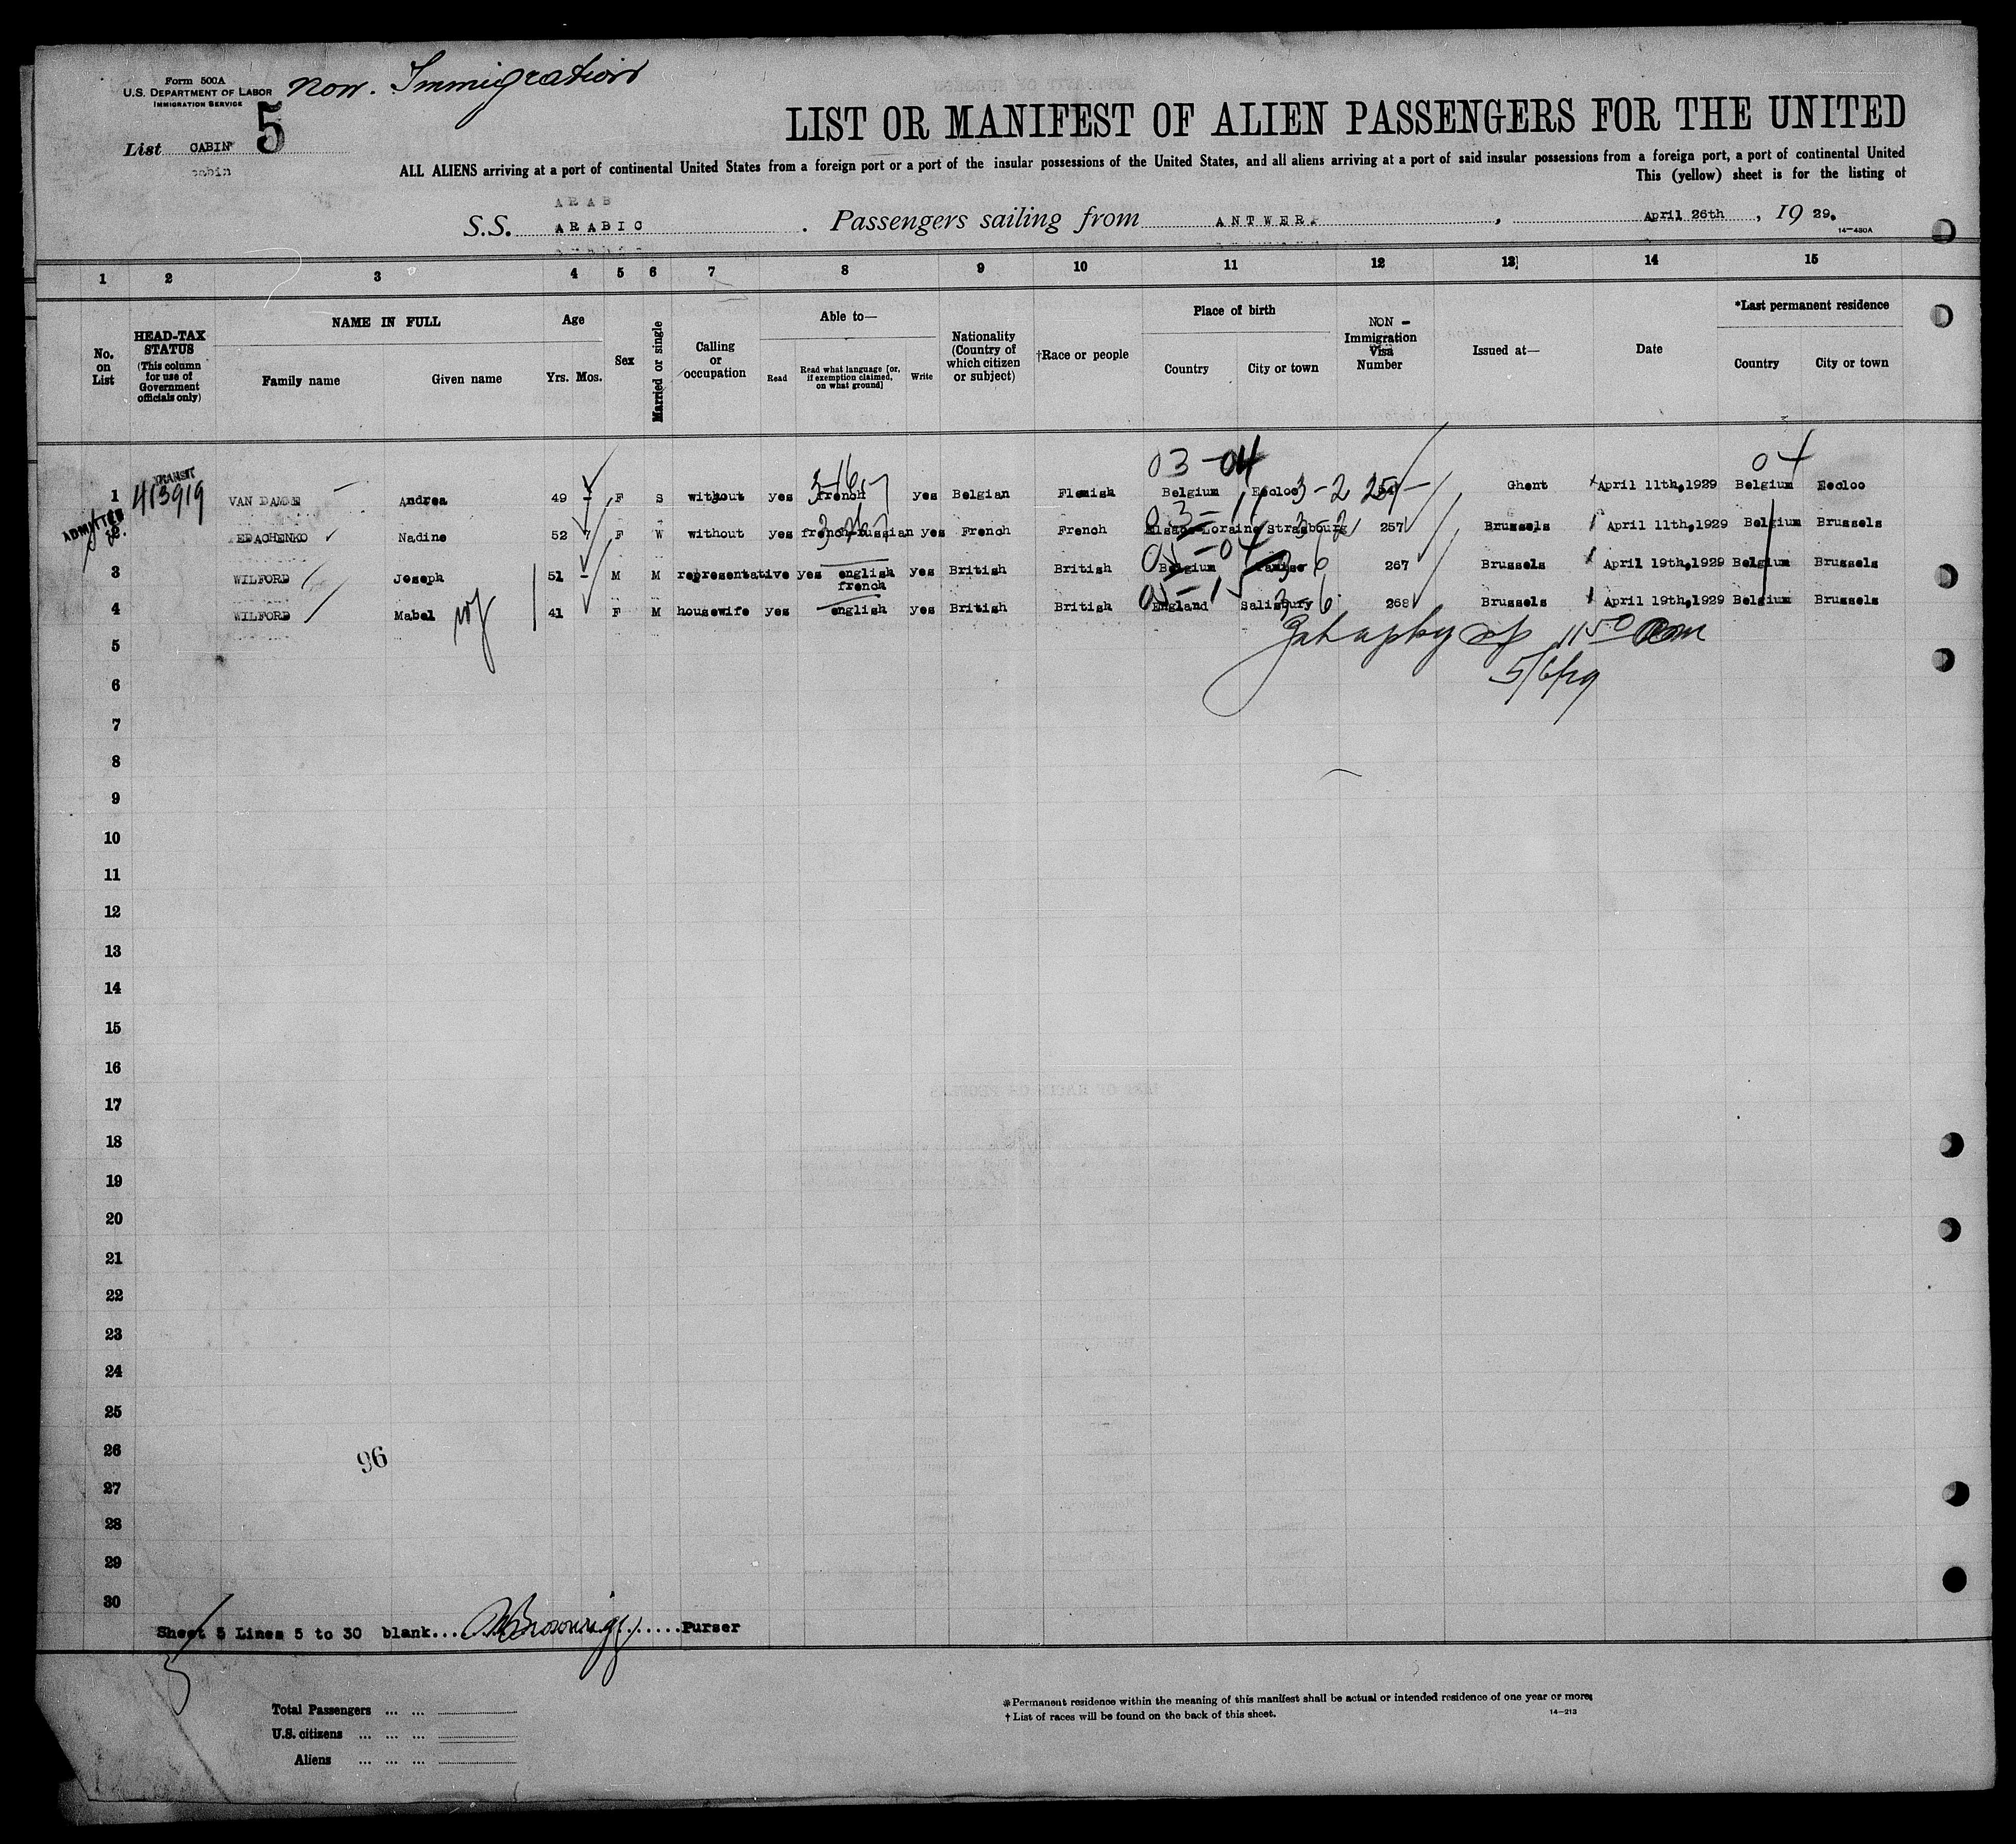 Form 500A
U.S. DEPARTMENT OF LABOR
IMMIGRATION SERVICE
non. Immigration
List CABIN 5
cabin
LIST OR MANIFEST OF ALIEN PASSENGERS FOR THE UNITED
ALL ALIENS arriving at a port of continental United States from a foreign port or a port of the insular possessions of the United States, and all aliens arriving at a port of said insular possessions from a foreign port, a port of continental United
This (yellow) sheet is for the listing of
ARAB
S.S. ARABIC . Passengers sailing from ANTWERP , April 26th , 19 29.
14-430A
1 2 3 4 5 6 7 8 9 10 11 12 13 14 15
No. on List
HEAD-TAX STATUS (This column for use of Government officials only)
NAME IN FULL
Family name Given name
Age
Yrs. Mos.
Sex
Married or single
Calling or occupation
Able to—
Read Read what language [or, if exemption claimed, on what ground] Write
Nationality (Country of which citizen or subject)
†Race or people
Place of birth
Country City or town
NON - Immigration Visa Number
Issued at—
Date
*Last permanent residence
Country City or town
03-04 04
TRANSIT
1 413919 VAN DAMME Andrea 49 - F S without yes french yes Belgian Flemish Belgium Eecloo 3-2 Ghent April 11th,1929 Belgium Eecloo
ADMITTED
03-11
2 FEDACHENKO Nadine 52 7 F W without yes french-russian yes French French Elsace-Loraine Strasbourg 3-2 257 Brussels April 11th,1929 Belgium Brussels
05-04
3 WILFORD Joseph 51 - M M representative yes english french yes British British Belgium Tamise 267 Brussels April 19th,1929 Belgium Brussels
05-1
4 WILFORD Mabel wf 41 F M housewife yes english yes British British England Salisbury 3-6 268 Brussels April 19th,1929 Belgium Brussels
11 50 am
5/6/29
5
6
7
8
9
10
11
12
13
14
15
16
17
18
19
20
21
22
23
24
25
26
96
27
28
29
30
Sheet 5 Lines 5 to 30 blank.... ......Purser
5
Total Passengers ... ...
U.S. citizens ... ... ...
Aliens ... ... ...
*Permanent residence within the meaning of this manifest shall be actual or intended residence of one year or more.
†List of races will be found on the back of this sheet.
14-213